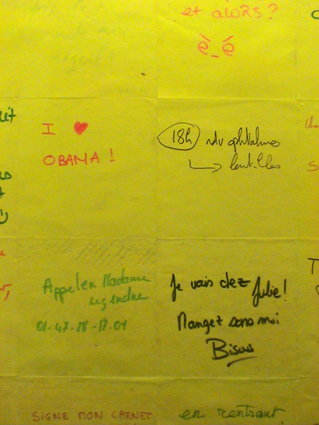 et aLORS?
I ♥
OBAMA !
18h rdv ophtalmo
→ lentilles
Appeler Madame
Legendre
01-47-28-17-04
Je vais chez Julie !
Manger sans moi
Bisous
SIGNE MON CARNET
en rentrant